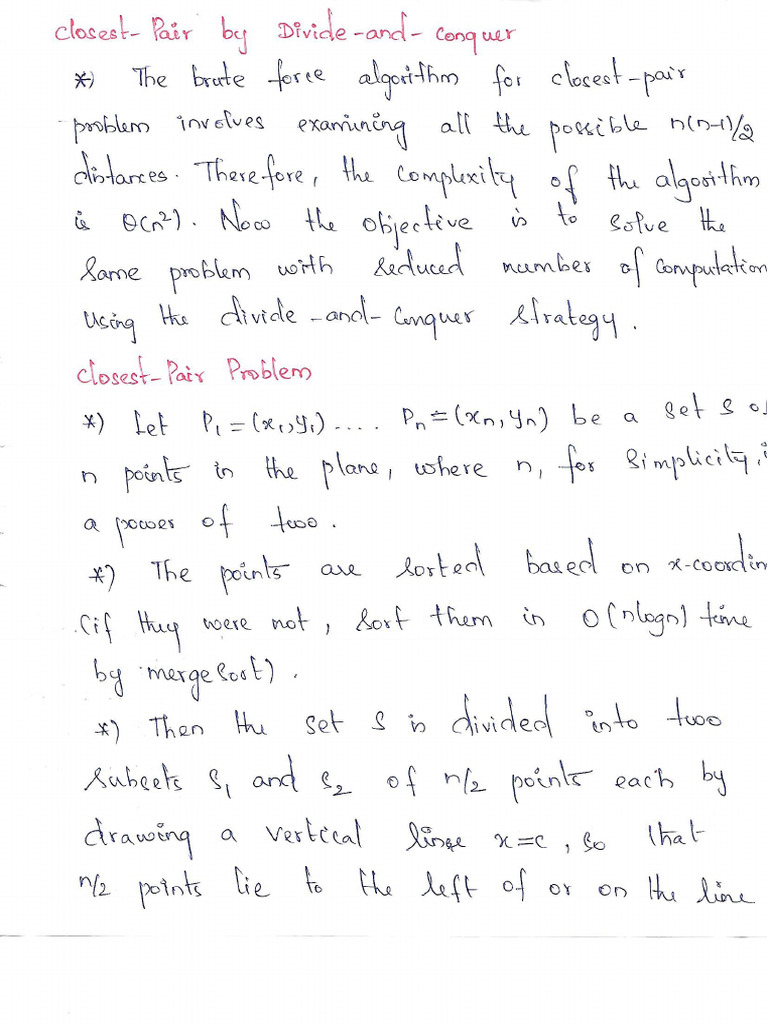 Closest-Pair by Divide-and-Conquer
*) The brute force algorithm for closest-pair
problem involves examining all the possible n(n-1)/2
distances. Therefore, the complexity of the algorithm
is Θ(n²). Now the objective is to solve the
same problem with reduced number of computation
using the divide-and-conquer strategy.
Closest-Pair Problem
*) Let P₁ = (x₁,y₁) .... Pₙ = (xₙ,yₙ) be a set S o
n points in the plane, where n, for simplicity, i
a power of two.
*) The points are sorted based on x-coordin
(if they were not, sort them in O(nlogn) time
by mergesort).
*) Then the set S is divided into two
subsets S₁ and S₂ of n/2 points each by
drawing a vertical line x=c, so that
n/2 points lie to the left of or on the line